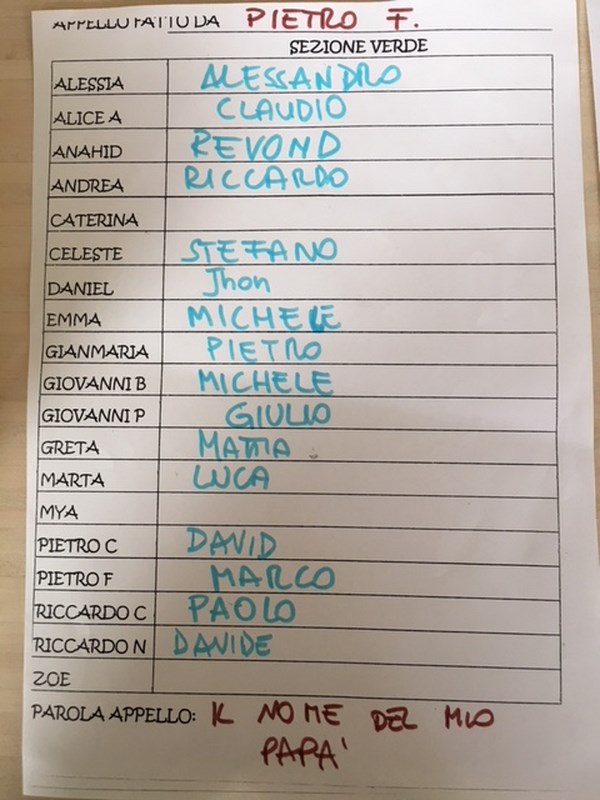 APPELLO FATTO DA PIETRO F.
SEZIONE VERDE
ALESSIA ALESSANDRO
ALICE A CLAUDIO
ANAHID REVOND
ANDREA RICCARDO
CATERINA
CELESTE STEFANO
DANIEL Jhon
EMMA MICHELE
GIANMARIA PIETRO
GIOVANNI B MICHELE
GIOVANNI P GIULIO
GRETA MATTIA
MARTA LUCA
MYA
PIETRO C DAVID
PIETRO F MARCO
RICCARDO C PAOLO
RICCARDO N DAVIDE
ZOE
PAROLA APPELLO: IL NOME DEL MIO
PAPA'